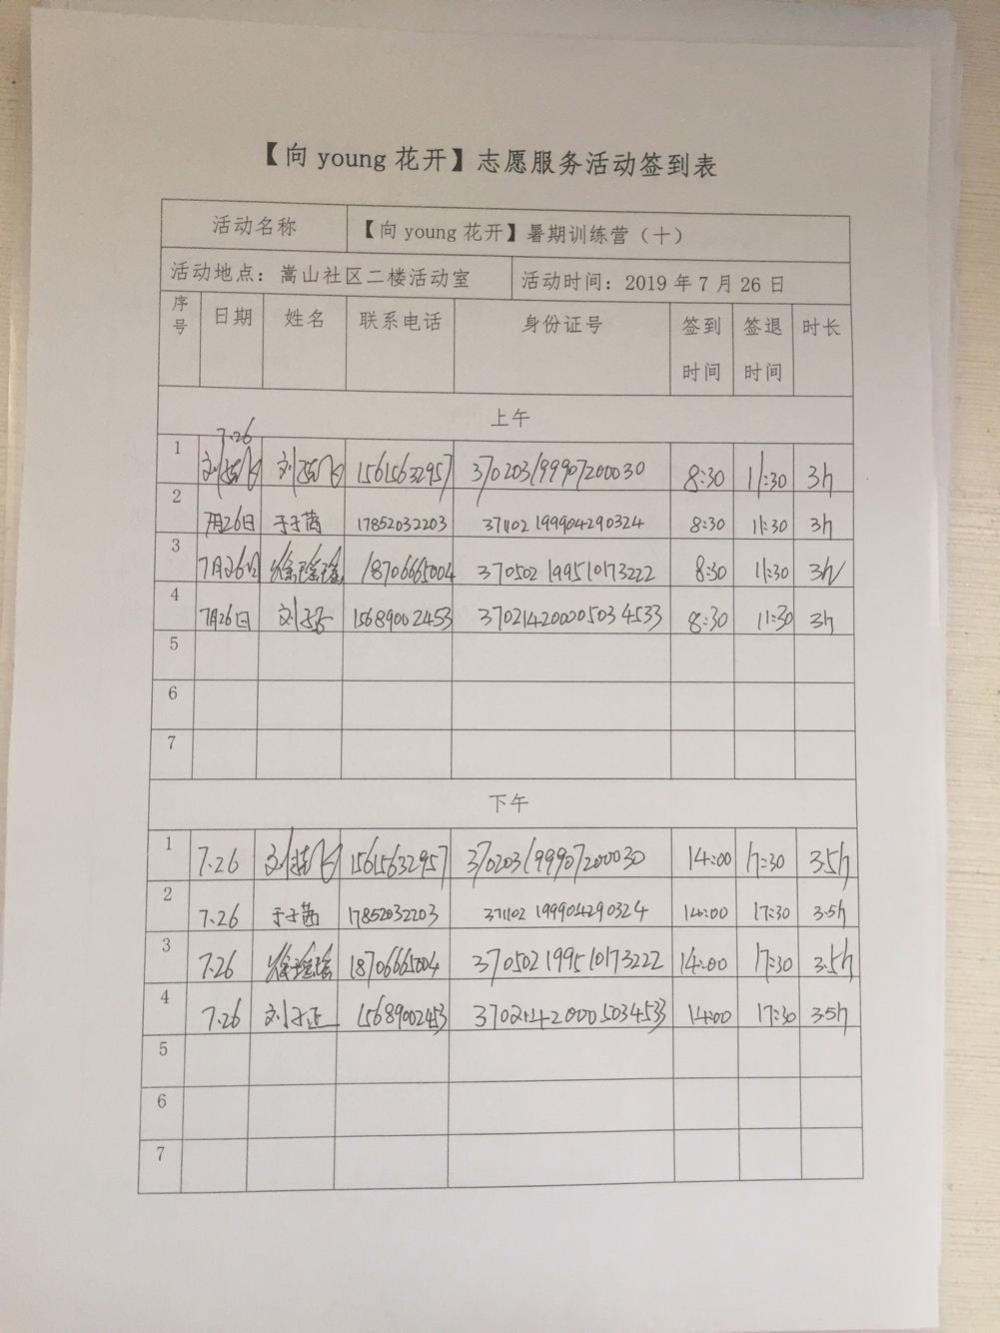 【向 young 花开】志愿服务活动签到表
活动名称 【向 young 花开】暑期训练营（十）
活动地点：嵩山社区二楼活动室 活动时间：2019 年 7 月 26 日
序号 日期 姓名 联系电话 身份证号 签到时间 签退时间 时长
上午
7.26
1 15615632957 370203199907200030 8:30 11:30 3h
2 7月26日 于子茜 17852032203 371102199904290324 8:30 11:30 3h
3 7月26日 徐瑶瑶 18706665004 370502199510173222 8:30 11:30 3h
4 7月26日 刘子正 15689002453 370214200005034533 8:30 11:30 3h
5
6
7
下午
1 7.26 15615632957 370203199907200030 14:00 17:30 3.5h
2 7.26 于子茜 17852032203 371102199904290324 14:00 17:30 3.5h
3 7.26 徐瑶瑶 18706665004 370502199510173222 14:00 17:30 3.5h
4 7.26 刘子正 15689002453 370214200005034533 14:00 17:30 3.5h
5
6
7